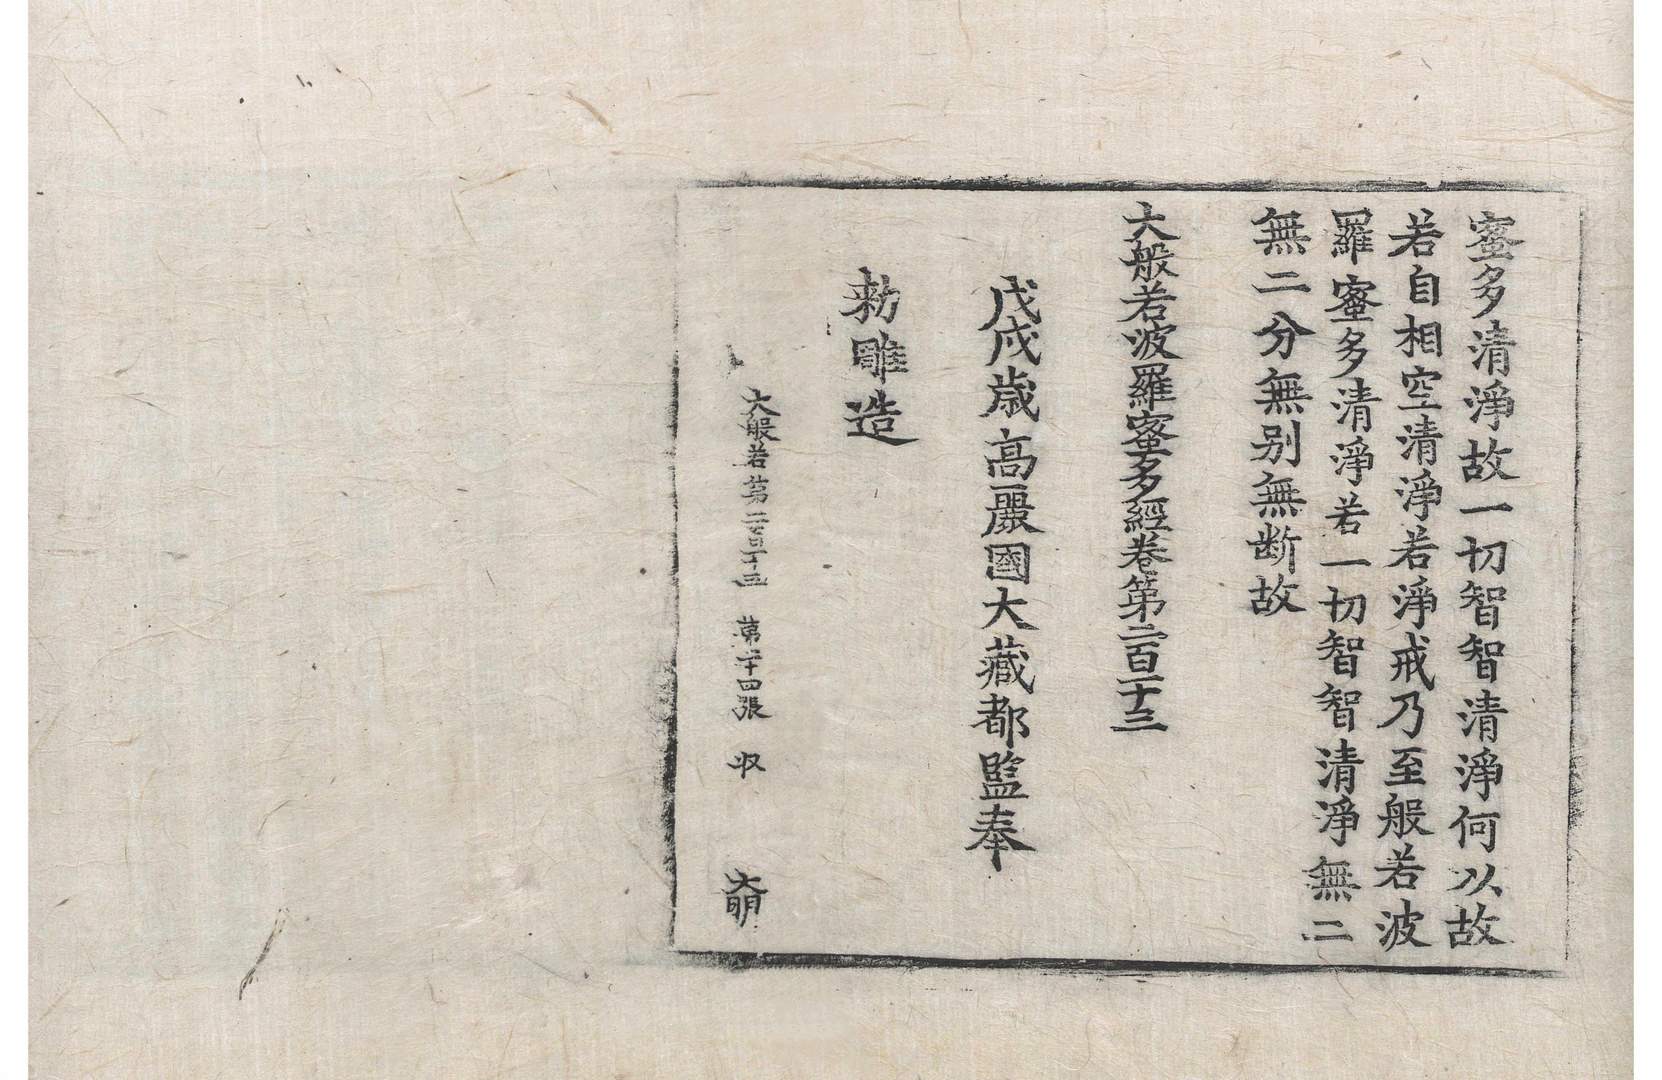 蜜多清淨故一切智智清淨何以故
若自相空清淨若淨戒乃至般若波
羅蜜多清淨若一切智智清淨無二
無二分無別無斷故
大般若波羅蜜多經卷第二百一十三
戊戌歲高麗國大藏都監奉
勅雕造
大般若第二百十三 第二十四張 収 大明